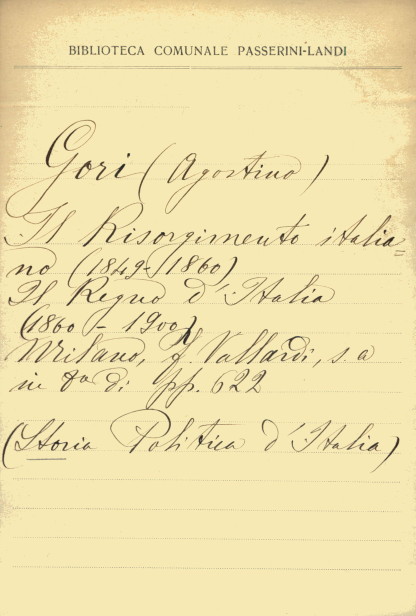 BIBLIOTECA COMUNALE PASSERINI-LANDI
Gori (Agostino)
Il Risorgimento italia=
no (1849-1860)
Il Regno d'Italia
(1860 - 1900)
Milano, F. Vallardi, s. a
in 8º di pp. 622
(Storia Politica d'Italia)